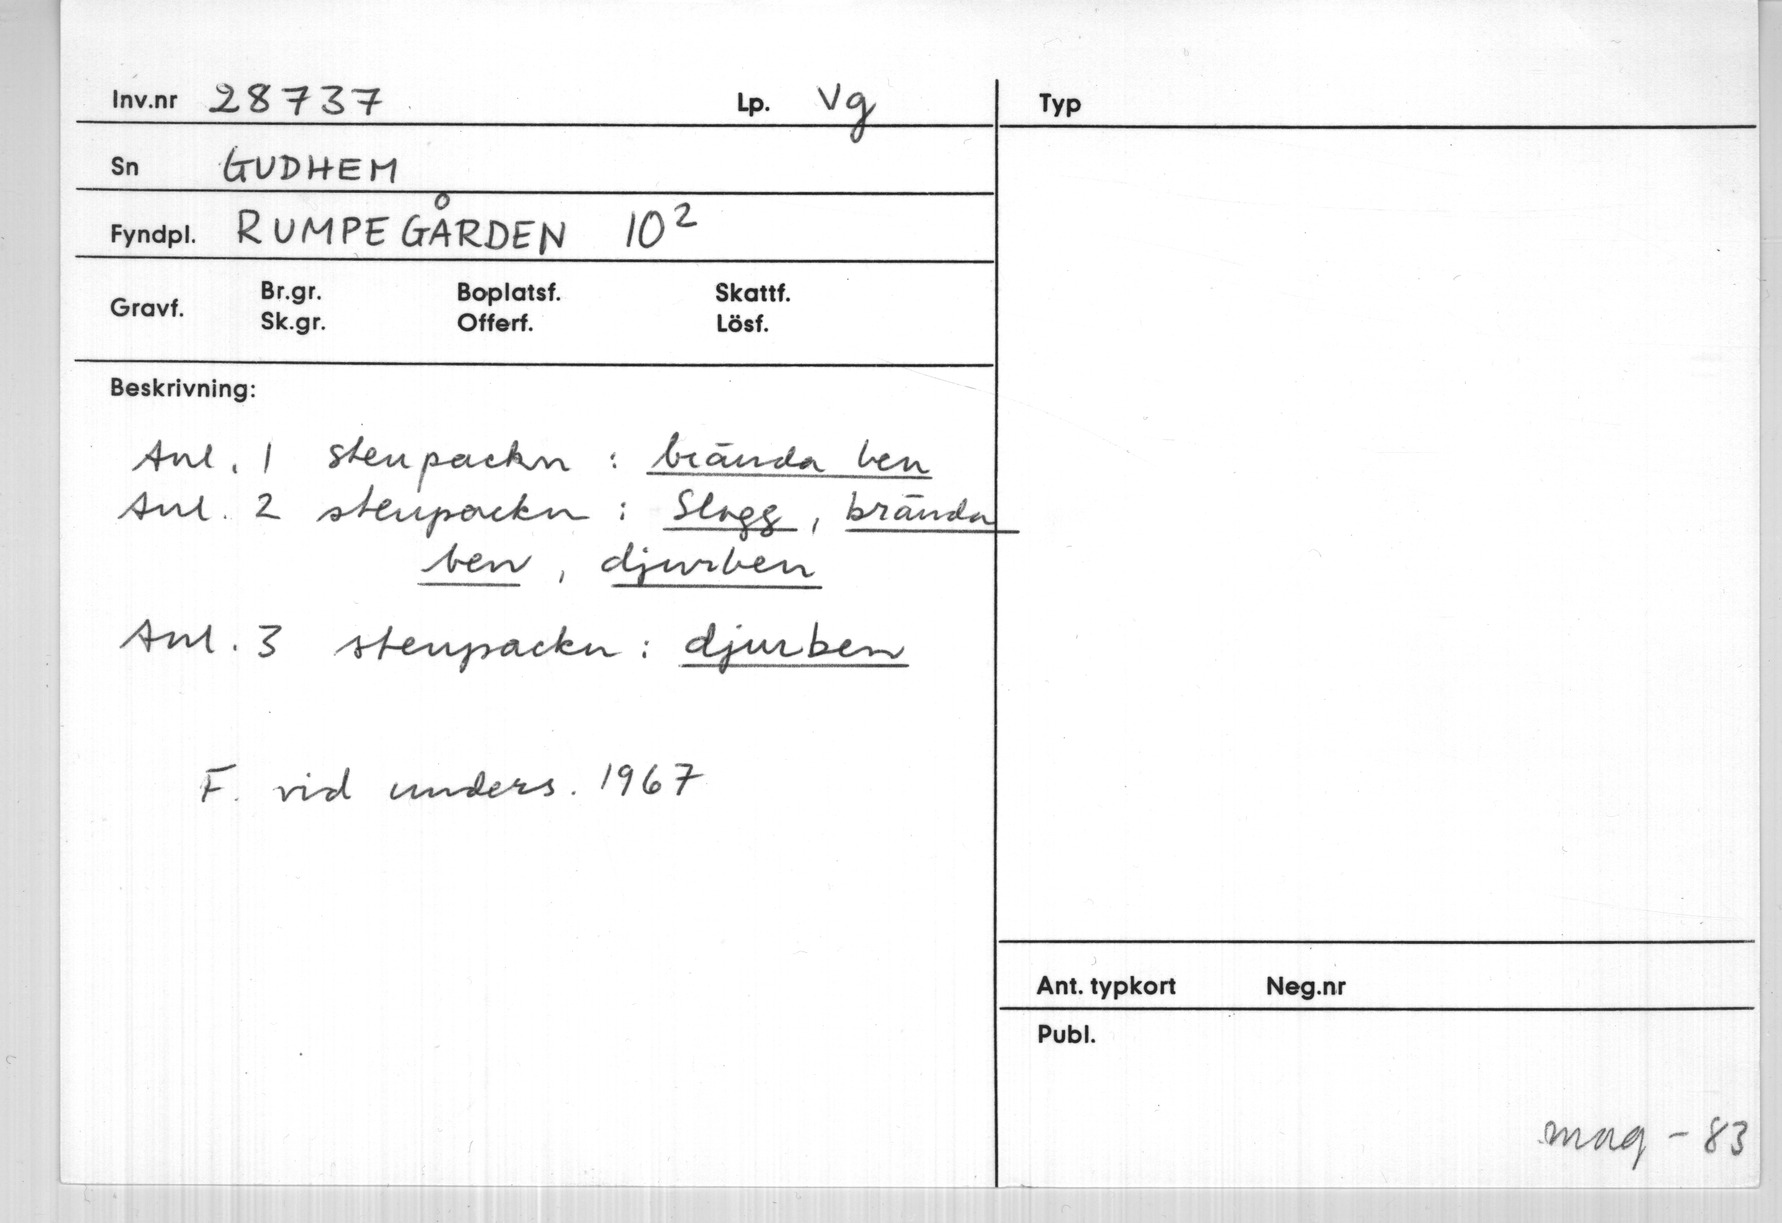 Inv.nr 28737 Lp. Vg
Sn GUDHEM
Fyndpl. RUMPEGÅRDEN 10²
Gravf. Br.gr. Boplatsf. Skattf.
Sk.gr. Offerf. Lösf.
Beskrivning:
Anl. 1 stenpackn : brända ben
Anl. 2 stenpackn : Slagg, brända
ben, djurben
Anl. 3 stenpackn: djurben
F. vid unders. 1967
Typ
Ant. typkort Neg.nr
Publ.
mag - 83